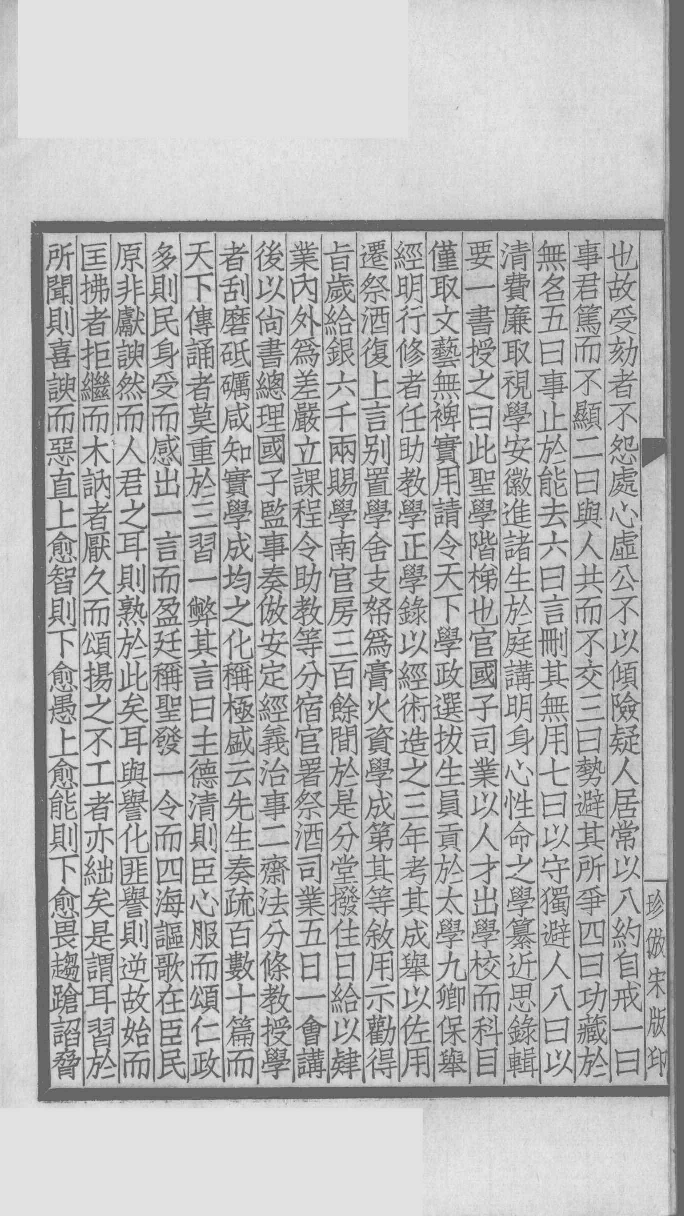 也故受劾者不怨處心虛公不以傾險疑人居常以八約自戒一曰
事君篤而不顯二曰與人共而不交三曰勢避其所爭四曰功藏於
無名五曰事止於能去六曰言刪其無用七曰以守獨避人八曰以
清費廉取視學安徽進諸生於庭講明身心性命之學纂近思錄輯
要一書授之曰此聖學階梯也官國子司業以人才出學校而科目
僅取文藝無裨實用請令天下學政選拔生員貢於太學九卿保舉
經明行修者任助教學正學錄以經術造之三年考其成舉以佐用
遷祭酒復上言別置學舍支帑爲膏火資學成第其等敘用示勸得
旨歲給銀六千兩賜學南官房三百餘間於是分堂撥住日給以肄
業內外爲差嚴立課程令助教等分宿官署祭酒司業五日一會講
後以尚書總理國子監事奏倣安定經義治事二齋法分條教授學
者刮磨砥礪咸知實學成均之化稱極盛云先生奏疏百數十篇而
天下傳誦者莫重於三習一弊其言曰主德清則臣心服而頌仁政
多則民身受而感出一言而盈廷稱聖發一令而四海謳歌在臣民
原非獻諛然而人君之耳則熟於此矣耳與譽化匪譽則逆故始而
匡拂者拒繼而木訥者厭久而頌揚之不工者亦絀矣是謂耳習於
所聞則喜諛而惡直上愈智則下愈愚上愈能則下愈畏趨蹌諂脅
珍倣宋版印